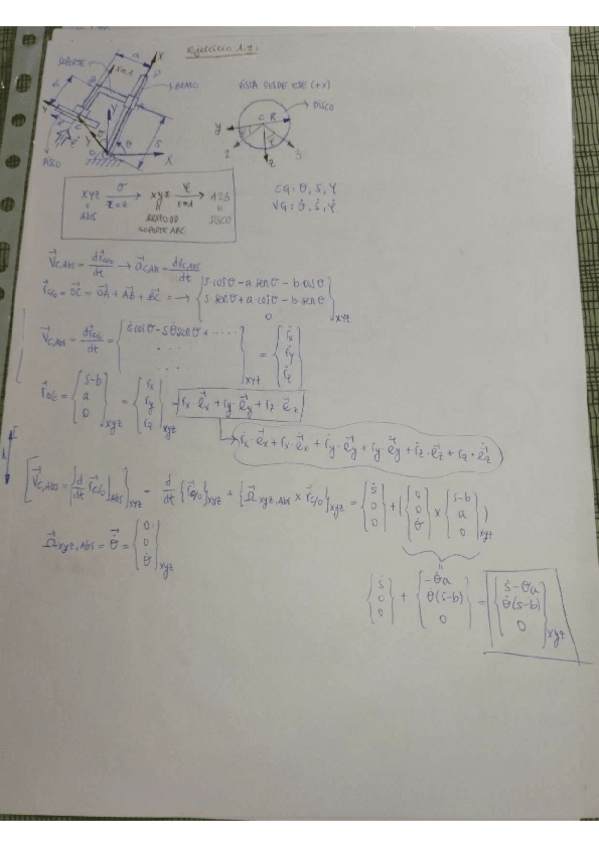 Ejercicio 1.2:
SOPORTE
x=1
a
X
D
S.BRAZO
B
A
b
C
S
Y
θ
O
X
DISCO
VISTA DESDE EJE (+x)
C R
DISCO
y
2
z
3
xyz θ→ xyz φ→ 123
Z=z x=1
ABS
SOPORTE ABC
DISCO
CG: θ, s, φ
VG: θ̇, ṡ, φ̇
V⃗c,ABS = dr⃗o/c / dt → a⃗c,ABS = dv⃗c,ABS / dt
r⃗o/c = O⃗C = O⃗A + A⃗B + B⃗C = → { s·cosθ - a senθ - b·cosθ
s senθ + a·cosθ - b·senθ
0 }XYZ
V⃗c,ABS = dr⃗o/c / dt = { ṡcosθ - sθ̇senθ + ......
....
.. }XYZ = { ṙx
ṙy
ṙz }
r⃗o/c = { s-b
a
0 }xyz = { rx
ry
rz }xyz = rx·e⃗x + ry·e⃗y + rz·e⃗z
ṙx·e⃗x + rx·ė⃗x + ṙy·e⃗y + ry·ė⃗y + ṙz·e⃗z + rz·ė⃗z
{ V⃗c,ABS = [ d/dt r⃗c/o ]ABS }xyz = d/dt { r⃗c/o }xyz + { Ω⃗xyz,ABS × r⃗c/o }xyz = { ṡ
0
0 } + ( { 0
0
θ̇ } × { s-b
a
0 } )xyz
Ω⃗xyz,ABS = θ̇⃗ = { 0
0
θ̇ }xyz
{ ṡ
0
0 } + { -θ̇a
θ̇(s-b)
0 } = { ṡ - θ̇a
θ̇(s-b)
0 }xyz